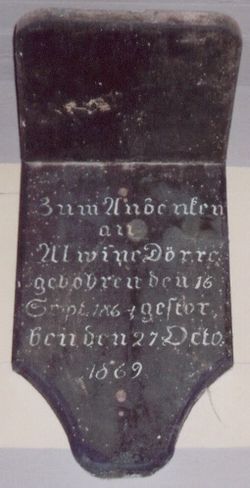 Zum Andenken
an
Alwine Dörre
gebohren den 16
Sept. gestor,
ben den 27 Octo
1869